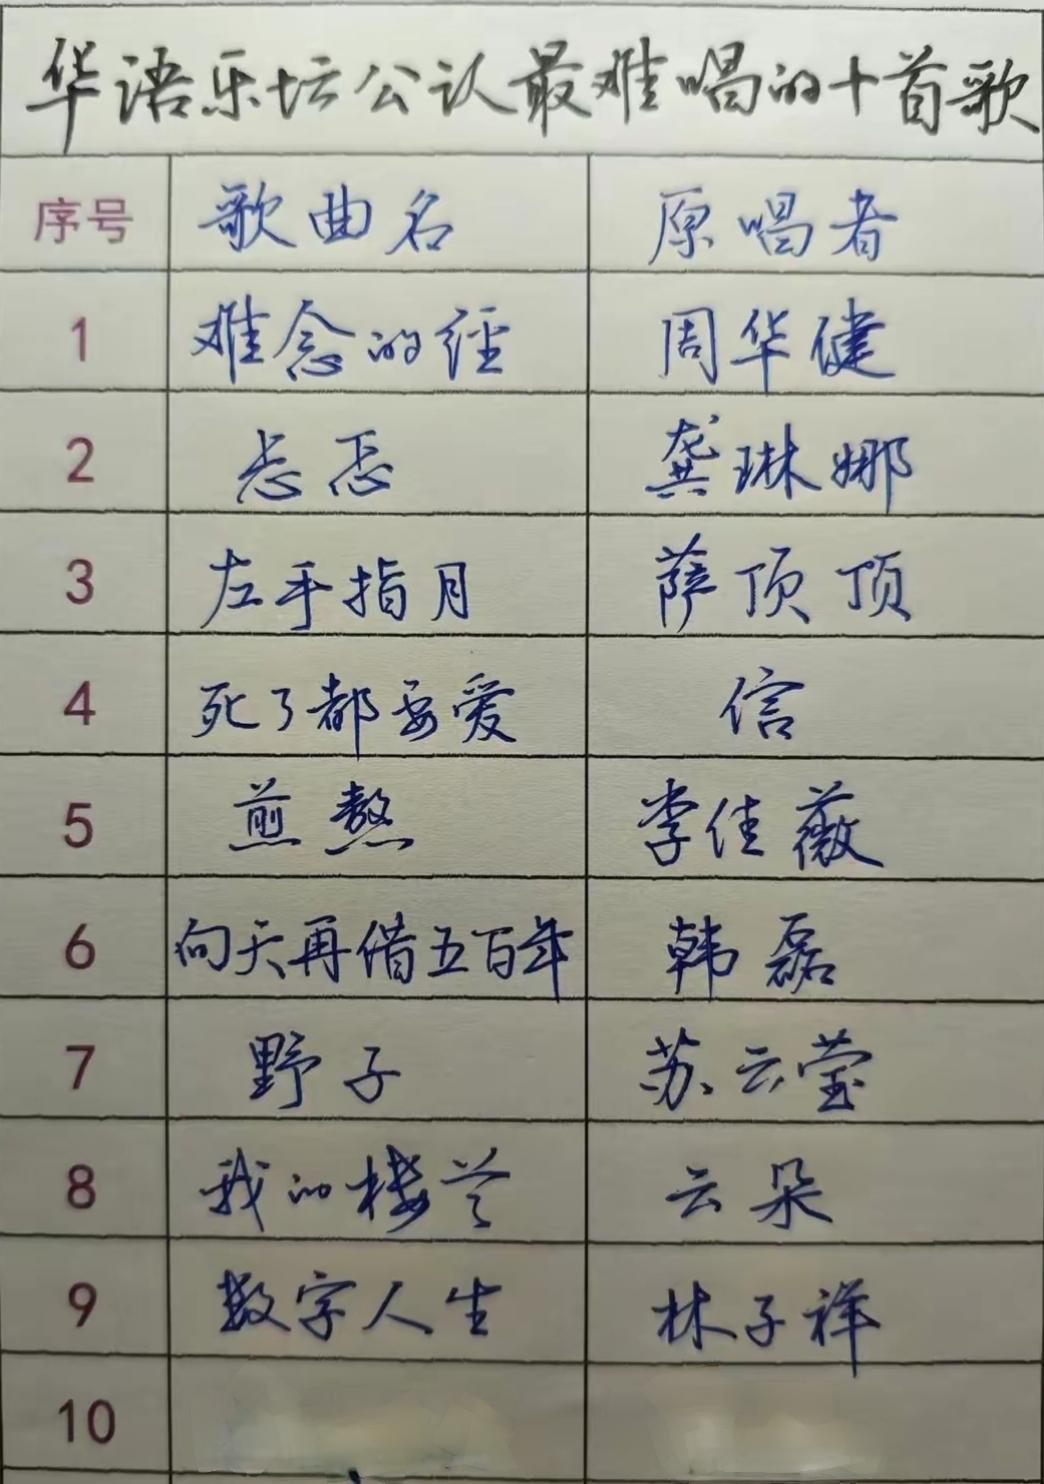 华语乐坛公认最难唱的十首歌
序号 歌曲名 原唱者
1 难念的经 周华健
2 忐忑 龚琳娜
3 左手指月 萨顶顶
4 死了都要爱 信
5 煎熬 李佳薇
6 向天再借五百年 韩磊
7 野子 苏运莹
8 我的楼兰 云朵
9 数字人生 林子祥
10